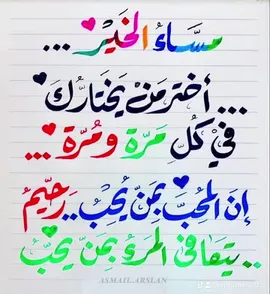 مساء الخير ...
... أختر من يختارك
في كل مرة ومُرة ...
إن المحب بمن يحب .. رحيم
.. يتعافى المرء بمن يحب
ASMAIL.ARSLAN